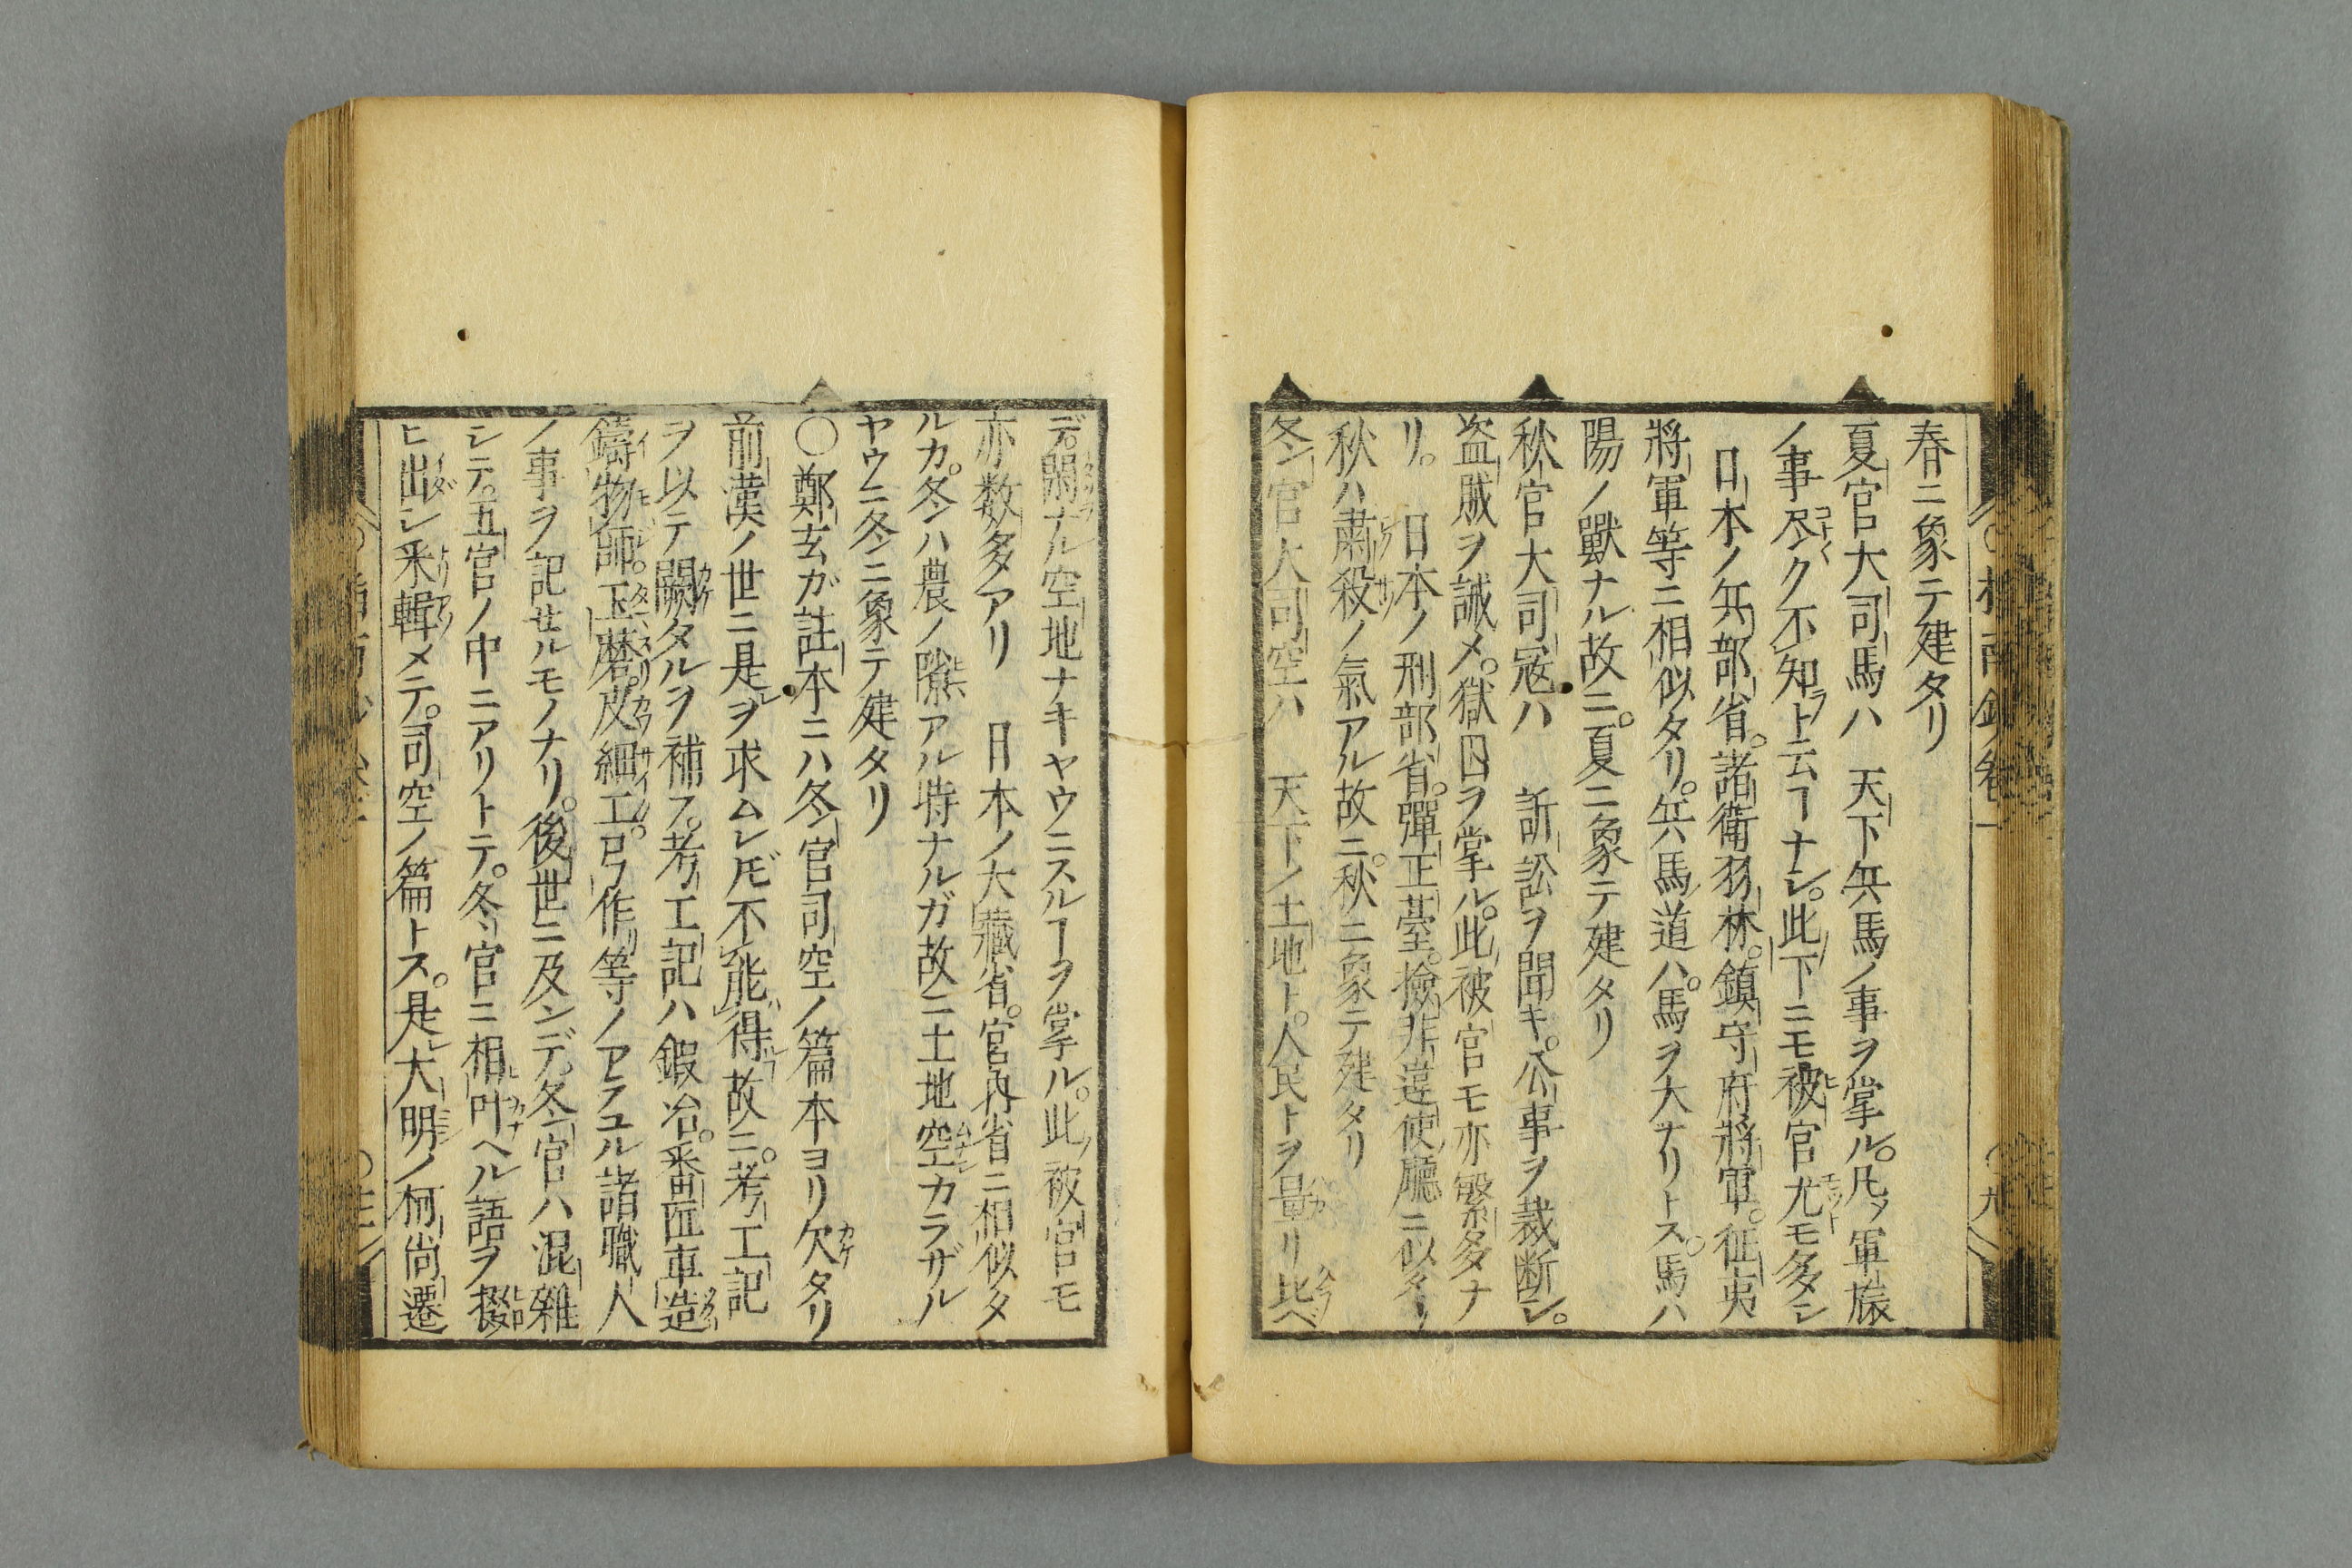 春ニ象テ建タリ
夏官大司馬ハ　天下兵馬ノ事ヲ掌ル。凡ソ軍旅
ノ事尽ク不知ト云ヿナシ。此下ニモ被官尤モ多シ
日本ノ兵部省。諸衛羽林。鎮守府將軍。征夷
將軍等ニ相似タリ。兵馬ノ道ハ。馬ヲ大ナリトス。馬ハ
陽ノ獸ナル故ニ。夏ニ象テ建タリ
秋官大司冦ハ　訢訟ヲ聞キ。公事ヲ裁断シ。
盗賊ヲ誡メ。獄囚ヲ掌ル。此被官モ亦繁多ナ
リ。　日本ノ刑部省。彈正䑓。撿非違使廳ニ似タリ
秋ハ肅殺ノ氣アル故ニ。秋ニ象テ建タリ
冬官大司空ハ　天下ノ土地ト。人民トヲ量リ比ベ
デ。閑ナル空地ナキヤウニスルヿヲ掌ル。此ノ被官モ
亦数多アリ　日本ノ大藏省。宮内省ニ相似タ
ルカ。冬ハ農ノ隙アル時ナルガ故ニ土地空カラザル
ヤウニ冬ニ象テ建タリ
〇鄭玄ガ註本ニハ冬官司空ノ篇本ヨリ欠タリ
前漢ノ世ニ是ヲ求ムレ𪜈不能得故ニ。考工記
ヲ以テ闕タルヲ補フ。考工記ハ鍜冶。番匠車造
鑄物師。玉磨。皮細工。弓作等ノアラユル諸職人
ノ事ヲ記セルモノナリ。後世ニ及ンデ。冬官ハ混雜
シテ。五官ノ中ニアリトテ。冬官ニ相叶ヘル語ヲ掇
ヒ出シ釆輯メテ。司空ノ篇トス。是レ大明ノ柯尚遷